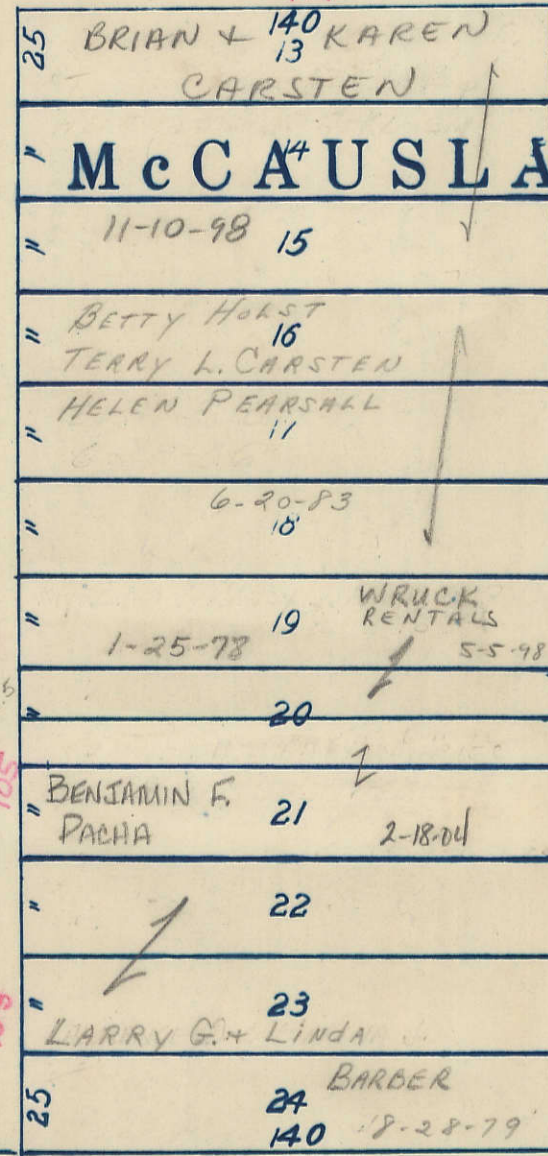 25 BRIAN & 140 KAREN
13
CARSTEN
" McCAUSLA
14
" 11-10-98 15
" BETTY HOLST
16
TERRY L. CARSTEN
HELEN PEARSALL
" 17
6-20-83
" 18
WRUCK
" 19 RENTALS
1-25-78 5-5-98
" 20
BENJAMIN F.
" 21
PACHA 2-18-04
105
" 22
" 23
LARRY G. & LINDA
BARBER
25 24
140 8-28-79